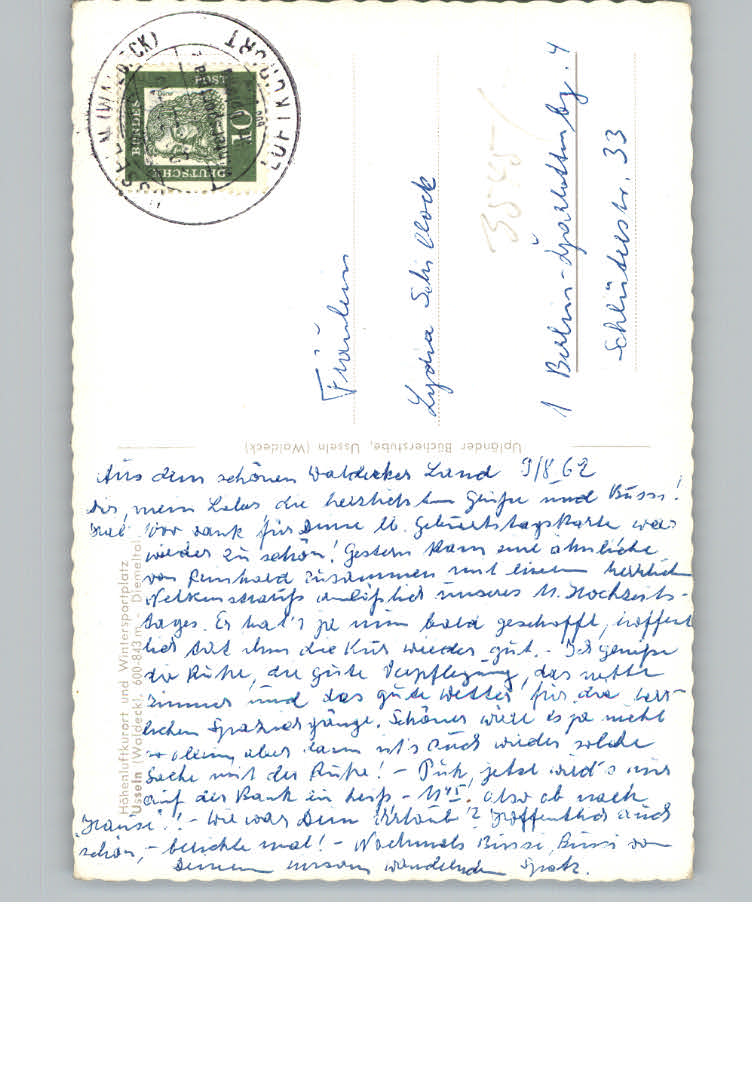 USSELN (WALDECK)
LUFTKURORT
DEUTSCHE
BUNDESPOST
10
Fräulein
Lydia Schillock
1 Berlin-Charlottenbg. 4
Schlüterstr. 33
3545
Upländer Bücherstube, Usseln (Waldeck)
Höhenluftkurort und Wintersportplatz
Usseln (Waldeck), 600-843 m - Diemeltal
Aus dem schönen Waldecker Land 9/8 62
Dir, mein Liebes die herzlichsten Grüße und Bussi!
Hab 100 Dank für Deine lb. Geburtstagskarte war
wieder zu schön! Gestern kam eine ähnliche
von Reinhold zusammen mit einem herrlich
Nelkenstrauß anläßlich unseres 11. Hochzeits-
tages. Er hat's ja nun bald geschafft, hoffent
lich tat ihm die Kur wieder gut. - Ich genieße
die Ruhe, die gute Verpflegung, das nette
Zimmer und das gute Wetter für die herr-
lichen Spaziergänge. Schöner wäre es ja nicht
so allein, aber dann ist's auch wieder solche
Sache mit der Ruhe! - Puh, jetzt wird's mir
auf der Bank zu heiß - 11⁴⁵. Also ab nach
"Hause"! - Wie war Dein Urlaub? Hoffentlich auch
schön, - berichte mal! - Nochmals Bussi, Bussi von
Deinem einsam wandelnden Spatz.